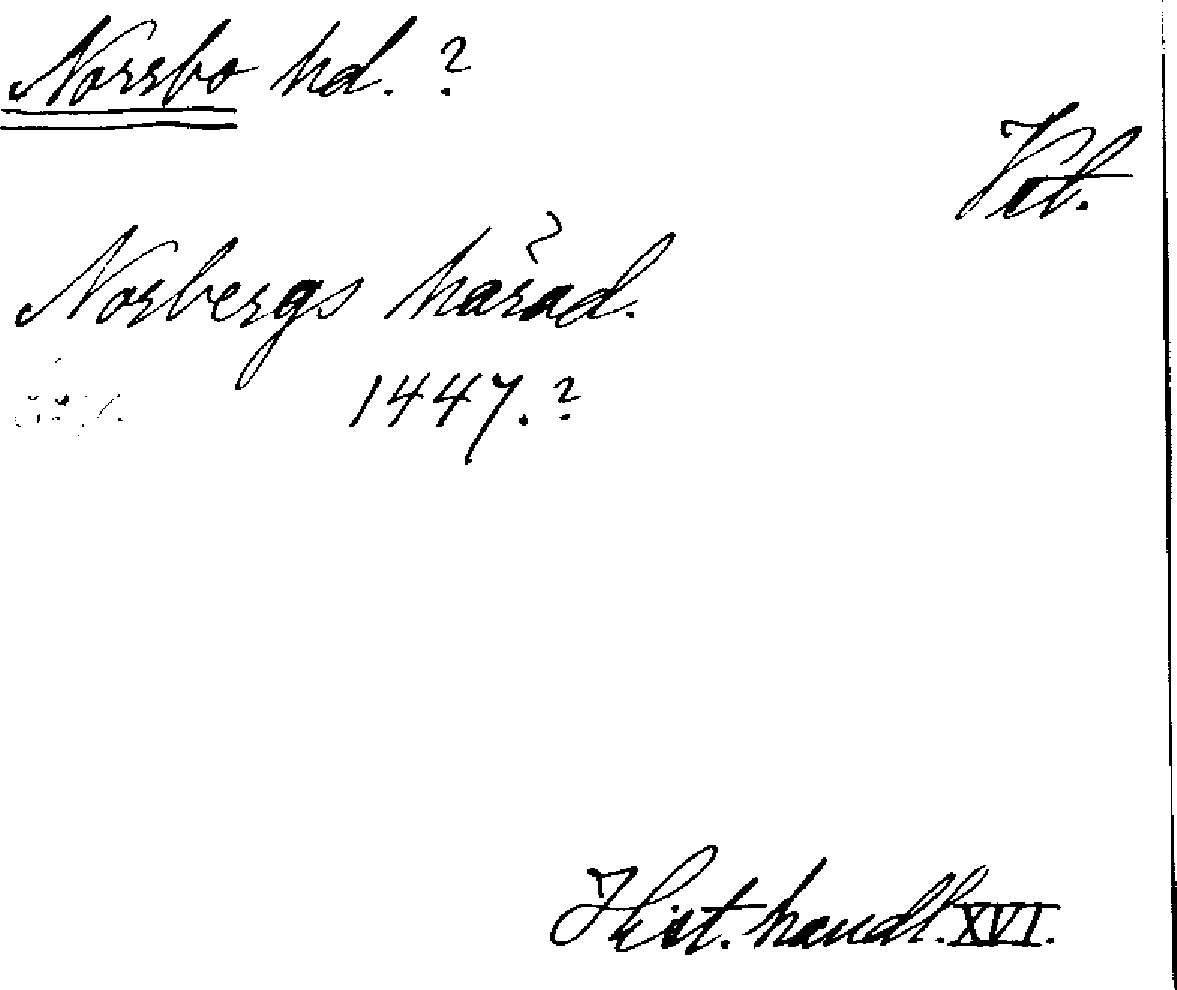 Norrbo hd. ?
Vst.
Norbergs härad.
1447. ?
Hist. handl. XVI.